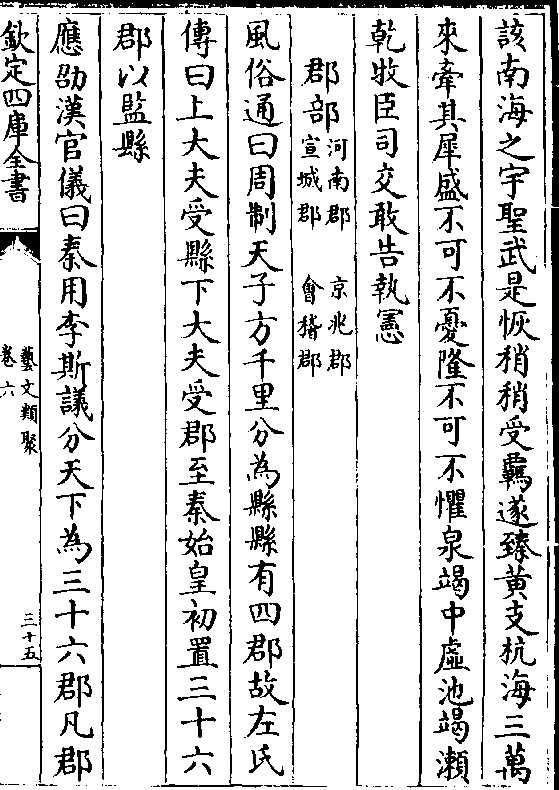 該南海之宇聖武是恢稍稍受羈遂臻黄支杭海三萬
來牽其犀盛不可不憂隆不可不懼泉竭中虛池竭瀕
乾牧臣司交敢告執憲
郡部 河南郡 京兆郡
宣城郡 會稽郡
風俗通曰周制天子方千里分為縣縣有四郡故左氏
傳曰上大夫受縣下大夫受郡至秦始皇初置三十六
郡以監縣
應劭漢官儀曰秦用李斯議分天下為三十六郡凡郡
欽定四庫全書
藝文類聚
卷六
三十五